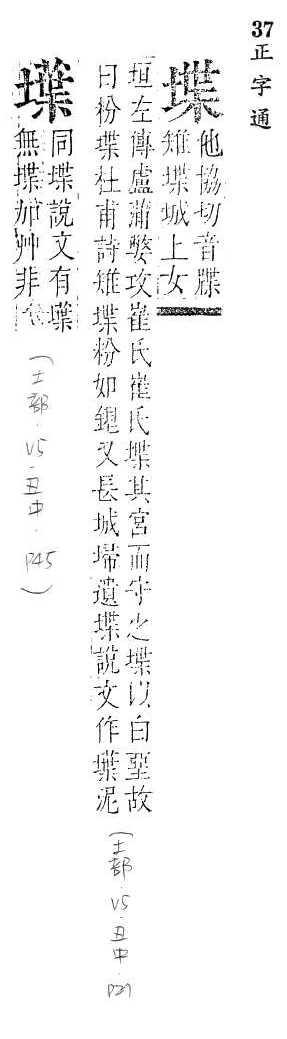 37正字通
堞
他協切音牒
雉堞城上女
垣左傳盧蒲嫳攻崔氏崔氏堞其宮而守之堞以白堊故
曰粉堞杜甫詩雉堞粉如銀又長城埽遺堞說文作㙪泥
(土部.V5.丑中.P21)
㙪
同堞說文有㙪
無堞加艸非
(土部.V5.丑中.P45)